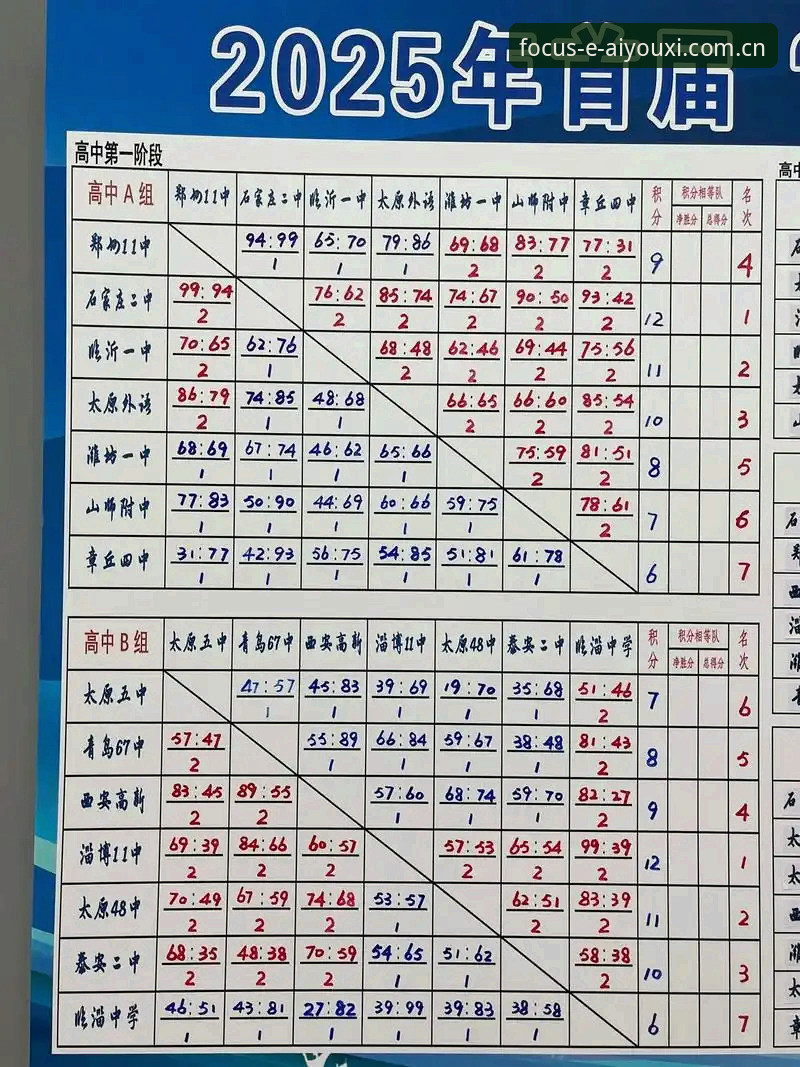 focus-e-aiyouxi.com.cn
2025年首届
高中第一阶段
高中A组 郑州11中 石家庄二中 临沂一中 太原外语 潍坊一中 山师附中 章丘四中 积分 积分相等队 净胜分 总得分 名次
郑州11中 94:99 65:70 79:86 69:68 83:77 77:31 9 4
1 1 1 2 2 2
石家庄二中 99:94 76:62 85:74 74:67 90:50 93:42 12 1
2 2 2 2 2 2
临沂一中 70:65 62:76 68:48 62:46 69:44 75:56 11 2
2 1 2 2 2 2
太原外语 86:79 74:85 48:68 66:65 66:60 85:54 10 3
2 1 1 2 2 2
潍坊一中 68:69 67:74 46:62 65:66 75:59 81:51 8 5
1 1 1 1 2 2
山师附中 77:83 50:90 44:69 60:66 59:75 78:61 7 6
1 1 1 1 1 2
章丘四中 31:77 42:93 56:75 54:85 51:81 61:78 6 7
1 1 1 1 1 1
高中B组 太原五中 青岛67中 西安高新 淄博11中 太原48中 泰安二中 临淄中学 积分 积分相等队 净胜分 总得分 名次
太原五中 47:57 45:83 39:69 19:70 35:68 51:46 7 6
1 1 1 1 1 2
青岛67中 57:47 55:89 66:84 59:67 38:48 81:43 8 5
2 1 1 1 1 2
西安高新 83:45 89:55 57:60 68:74 59:70 82:27 9 4
2 2 1 1 1 2
淄博11中 69:39 84:66 60:57 57:53 65:54 99:39 12 1
2 2 2 2 2 2
太原48中 70:49 67:59 74:68 53:57 62:51 83:39 11 2
2 2 2 1 2 2
泰安二中 68:35 48:38 70:59 54:65 51:62 58:38 10 3
2 2 2 1 1 2
临淄中学 46:51 43:81 27:82 39:99 39:83 38:58 6 7
1 1 1 1 1 1
高中